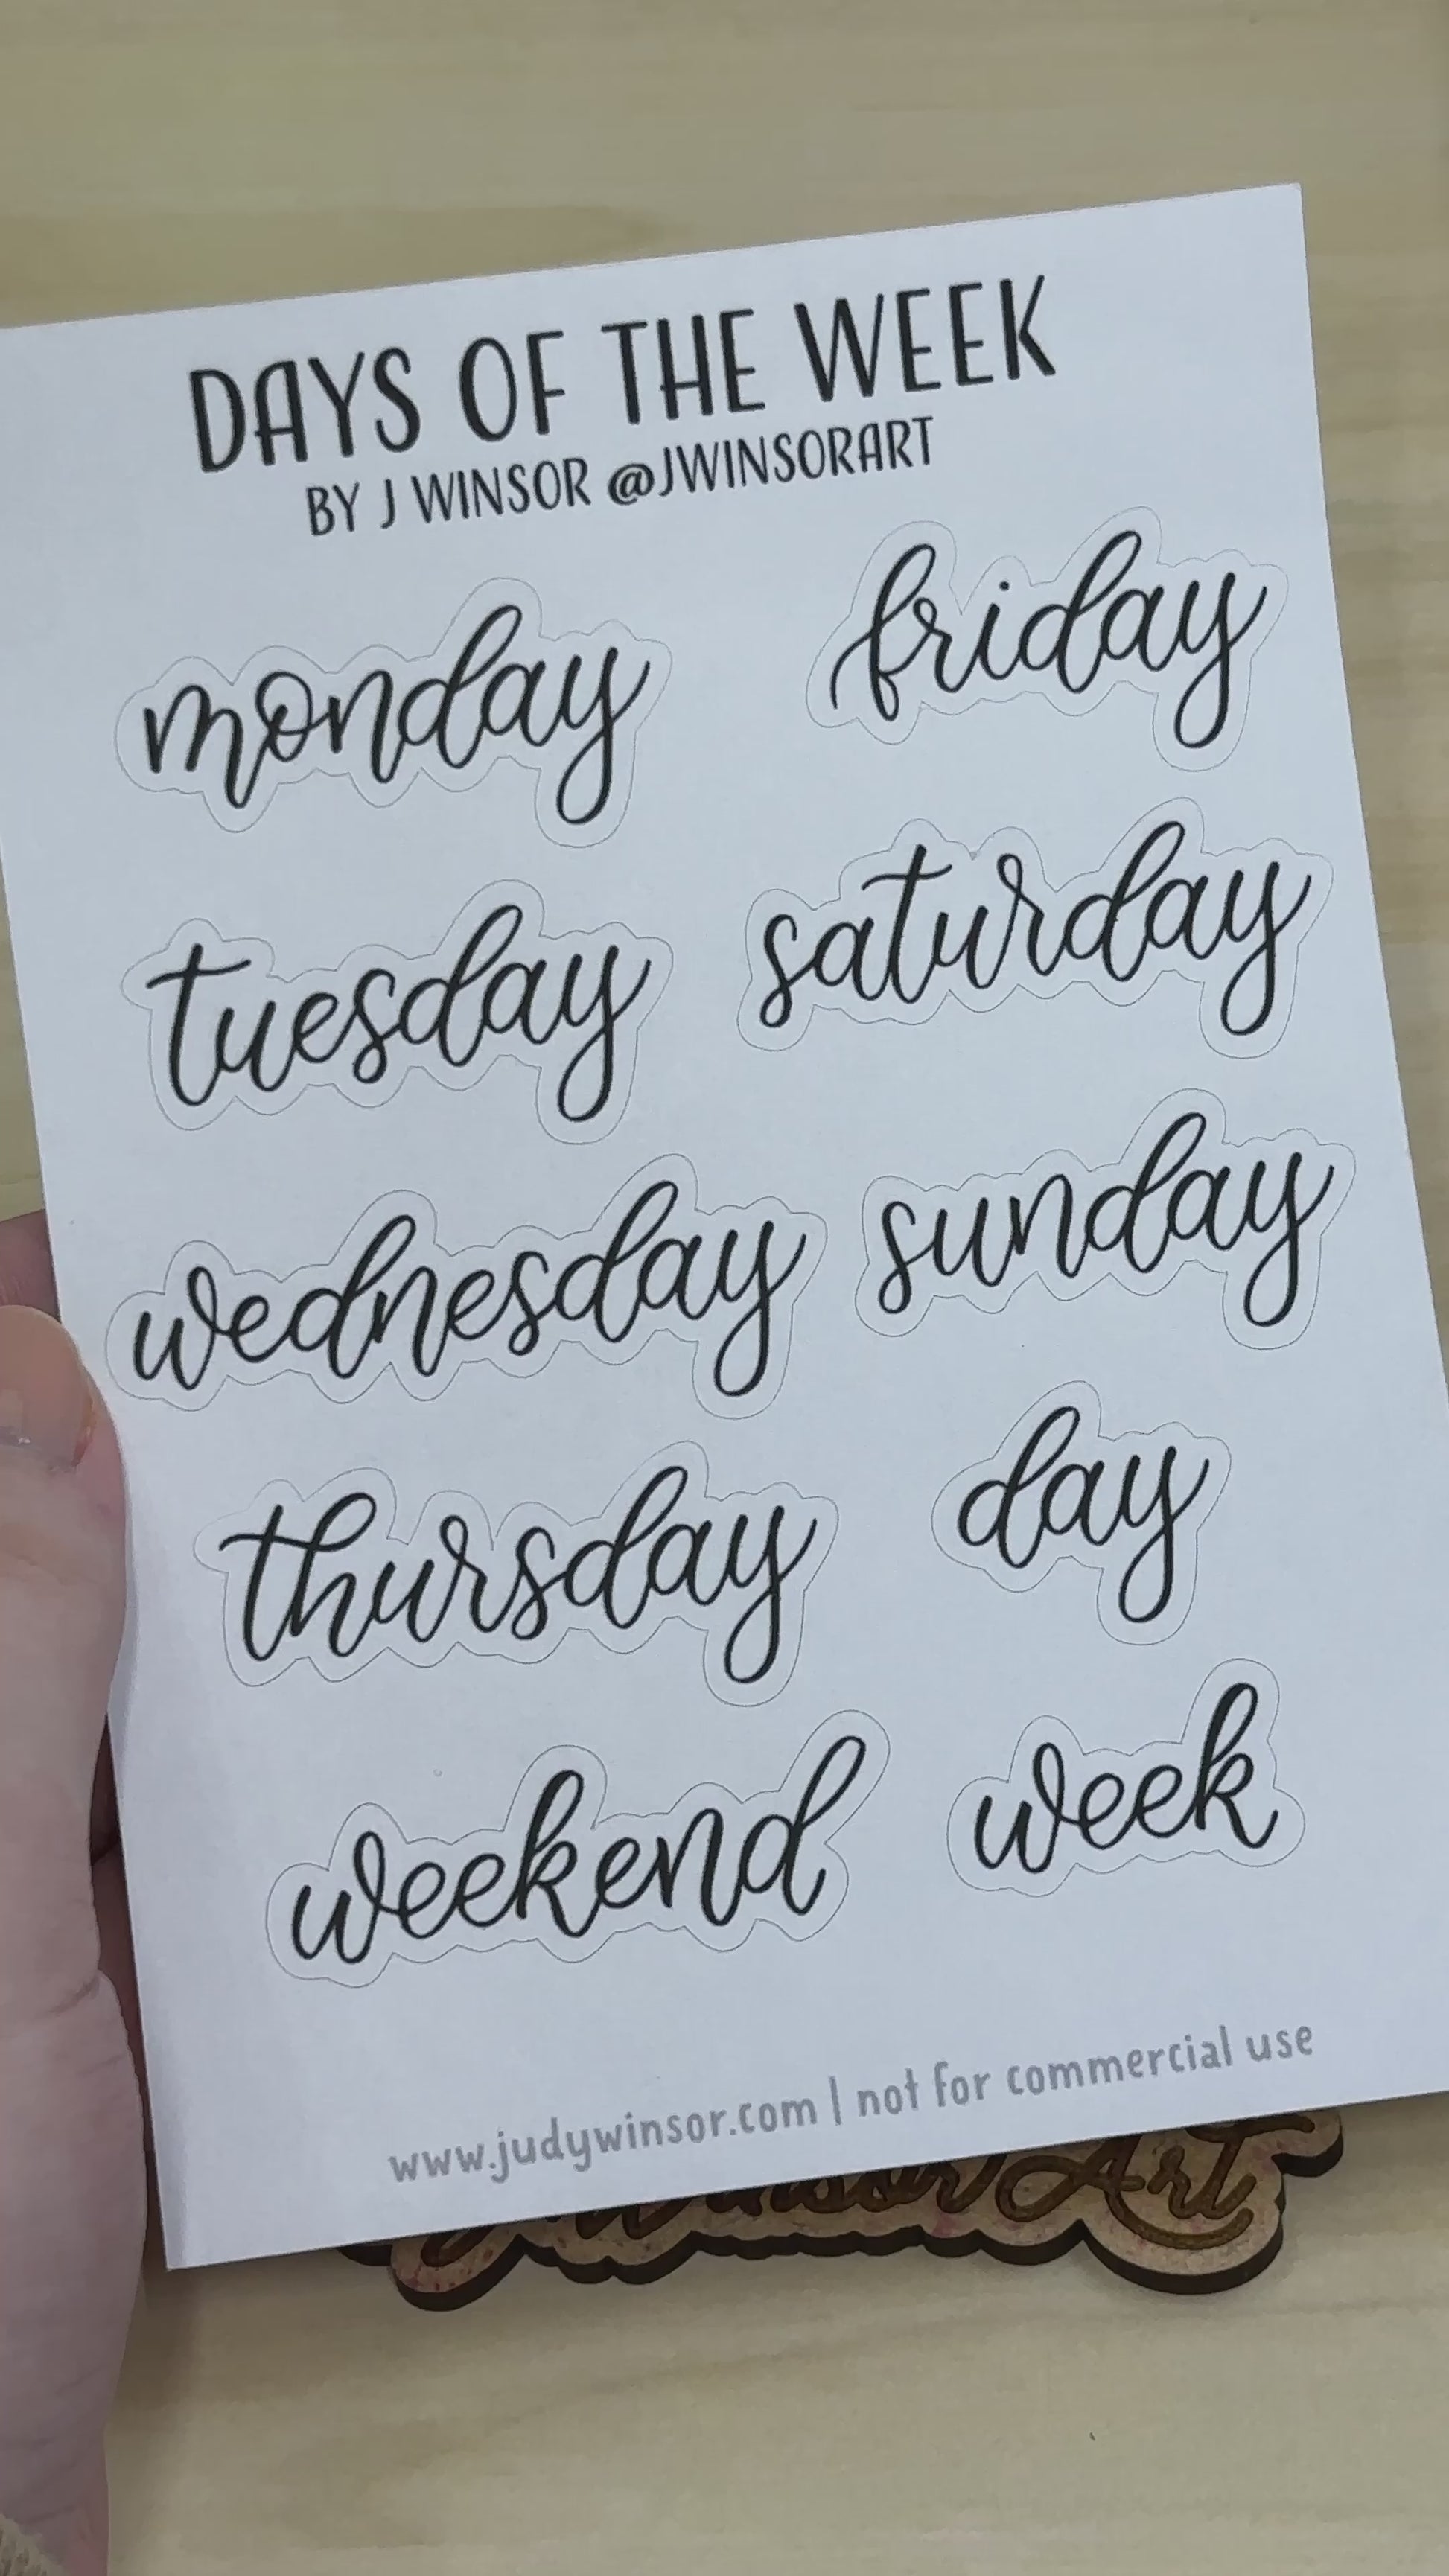 DAYS OF THE WEEK
BY J WINSOR @JWINSORART
monday
friday
tuesday
saturday
wednesday
sunday
thursday
day
weekend
week
www.judywinsor.com | not for commercial use
Winsor Art